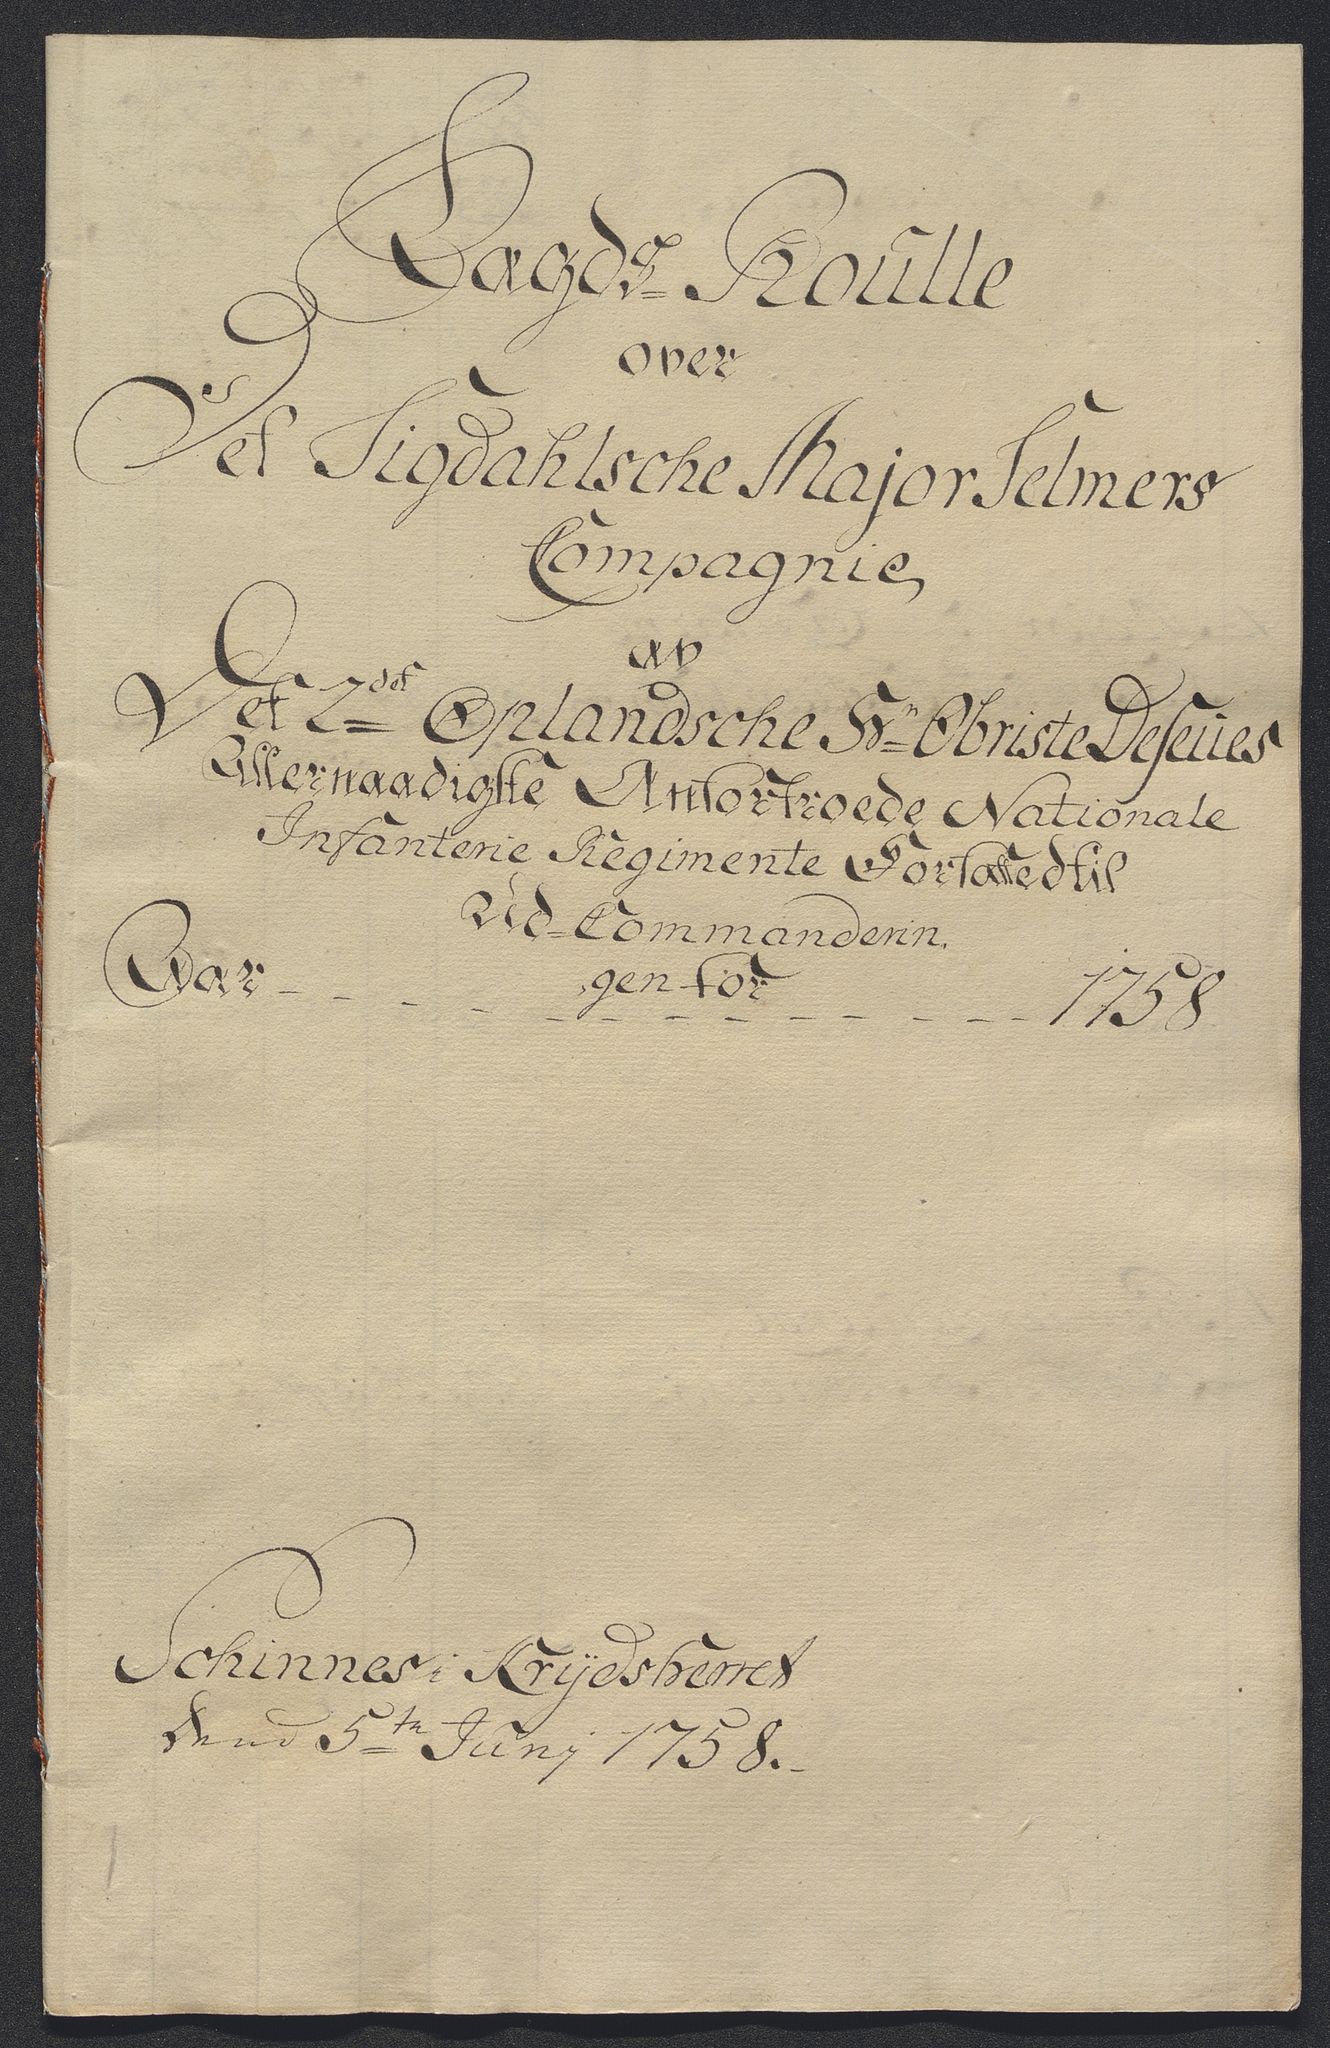 Lagds- Roulle
over
Det Sigdahlsche Major Selmers
Compagnie,
av
Det 2det Oplandsche Hr Obriste Deseües
Allernaadigste Anfortroede Nationale
Infanterie Regimente Forfatted til
Ud-Commanderin,
,gen for
Aar - - - - - - - - - - - - - 1758
Schinnes i Krydsherret
dend 5te Junj 1758.-